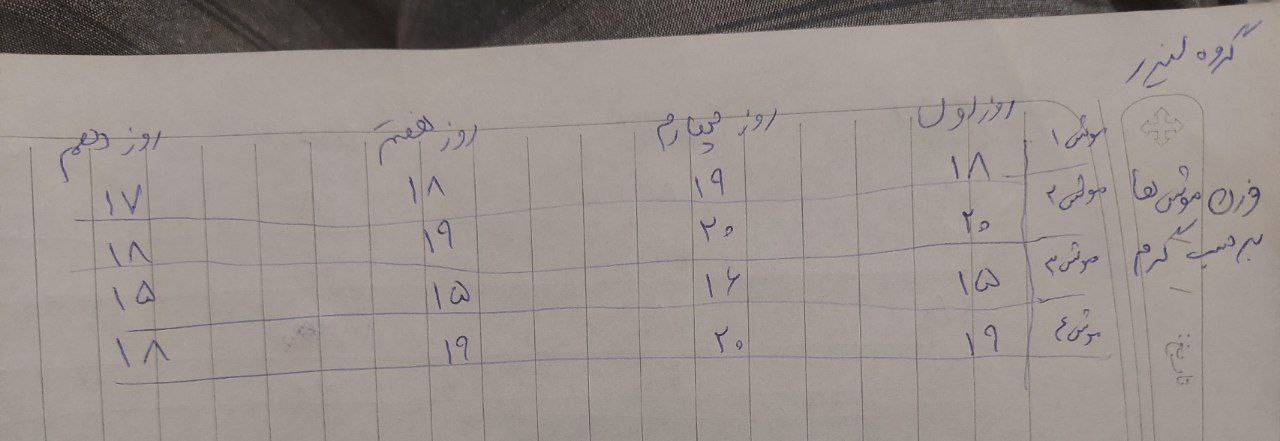 گروه لیزر
وزن موش ها
بر حسب گرم
روز اول روز چهارم روز هفتم روز دهم
موش ۱ ۱۸ ۱۹ ۱۸ ۱۷
موش ۲ ۲۰ ۲۰ ۱۹ ۱۸
موش ۳ ۱۵ ۱۶ ۱۵ ۱۵
موش ۴ ۱۹ ۲۰ ۱۹ ۱۸
تاریخ: